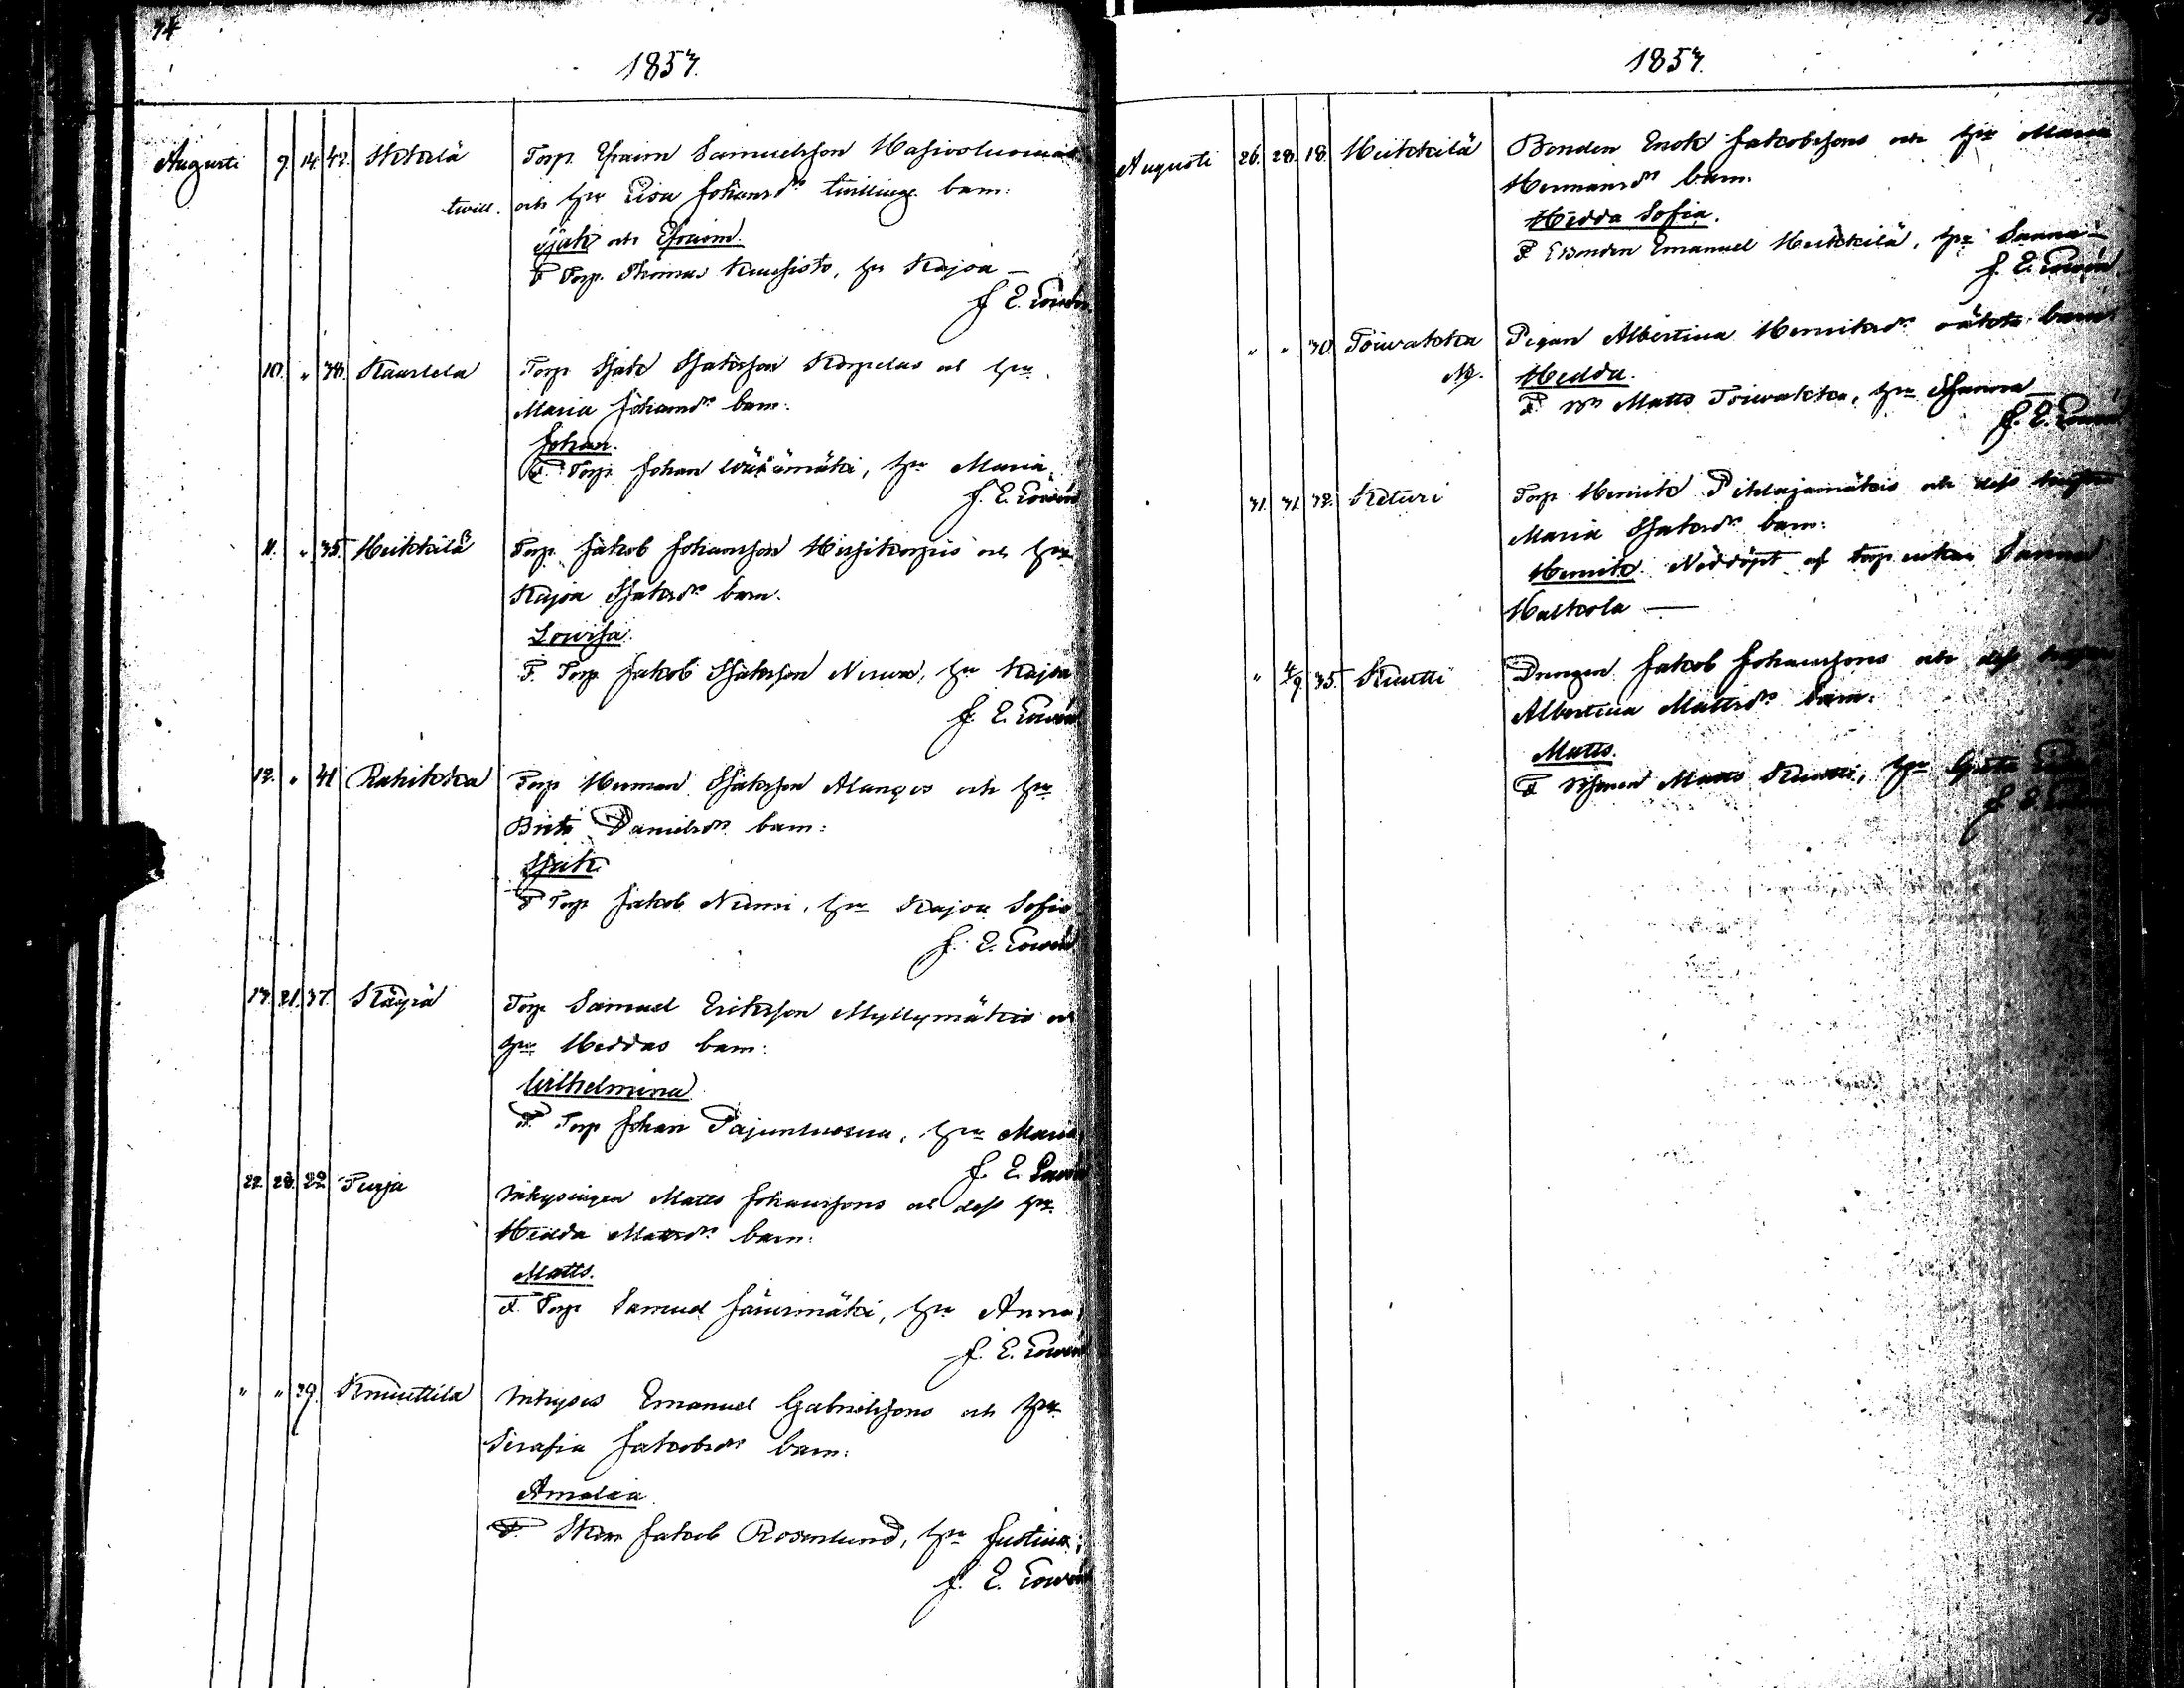 74
1857.
Augusti 9. 14. 42. Ikkelä Torp. Efraim Samuelsson Hasivoluomas
twill. och hru Lisa Johansdr tvillinge barn:
Isak och Efraim.
F Torp. Thomas Kuusisto, hu Kajsa —
J. E.
10. " 36. Kaurlela Torp Isak Isaksson Korpelas och hru
Maria Johansdr barn:
Johan.
F. Torp. Johan Wäkämäki, hu Maria.
J. E.
11. " 35. Heikkilä Torp. Jakob Johansson Hirsikorpis och hru
Kajsa Isaksdr barn.
Lovisa.
F. Torp. Jakob Isaksson Nirva, hu Kajsa
J. E.
12. " 41 Rahikka Torp Herman Isaksson Alangos och hru
Brita Danielsdr barn:
Isak.
F Torp Jakob Niemi, hru Kajsa Sofia
J. E.
13. 21. 37. Käyrä Torp Samuel Eriksson Myllymäkis och
hru Heddas barn:
Wilhelmina
F. Torp Johan Pajunluoma, hru Maria
J. E.
22. 23. 22 Turja Inhysingen Matts Johanssons och dess hru
Hedda Mattsdr barn:
Matts.
F. Torp Samuel Jäärimäki, hru Anna,
J. E.
" " 39. Knuuttila Inhyses Emanuel Gabrielssons och hru
Serafia Jakobsdr barn:
Amalia
F. Jakob Rosenlund, hru Justina;
J. E.
75
1857.
Augusti 26. 28. 18. Heikkilä Bonden Enok Jakobssons och hru Maria
Hermansdr barn.
Hedda Sofia.
F Bonden Emanuel Heikkilä, hru Sanna —
J. E.
" " 30. Toiwakka Pigan Albertina Henriksdr oäkta barn
Hedda.
F. Matts Toiwakka, hru Sanna —
J. E.
31. 31. 32. Keturi Torp Henrik Pihlajamäkis och dess hustru
Maria Isaksdr barn:
Henrik. Nöddöpt af torp. enkan Sanna
Halkola —
" 4/9. 35. Knutti Drengen Jakob Johanssons och dess hustru
Albertina Mattsdr barn:
Matts.
F Matts Knutti, hru Greta
J. E.